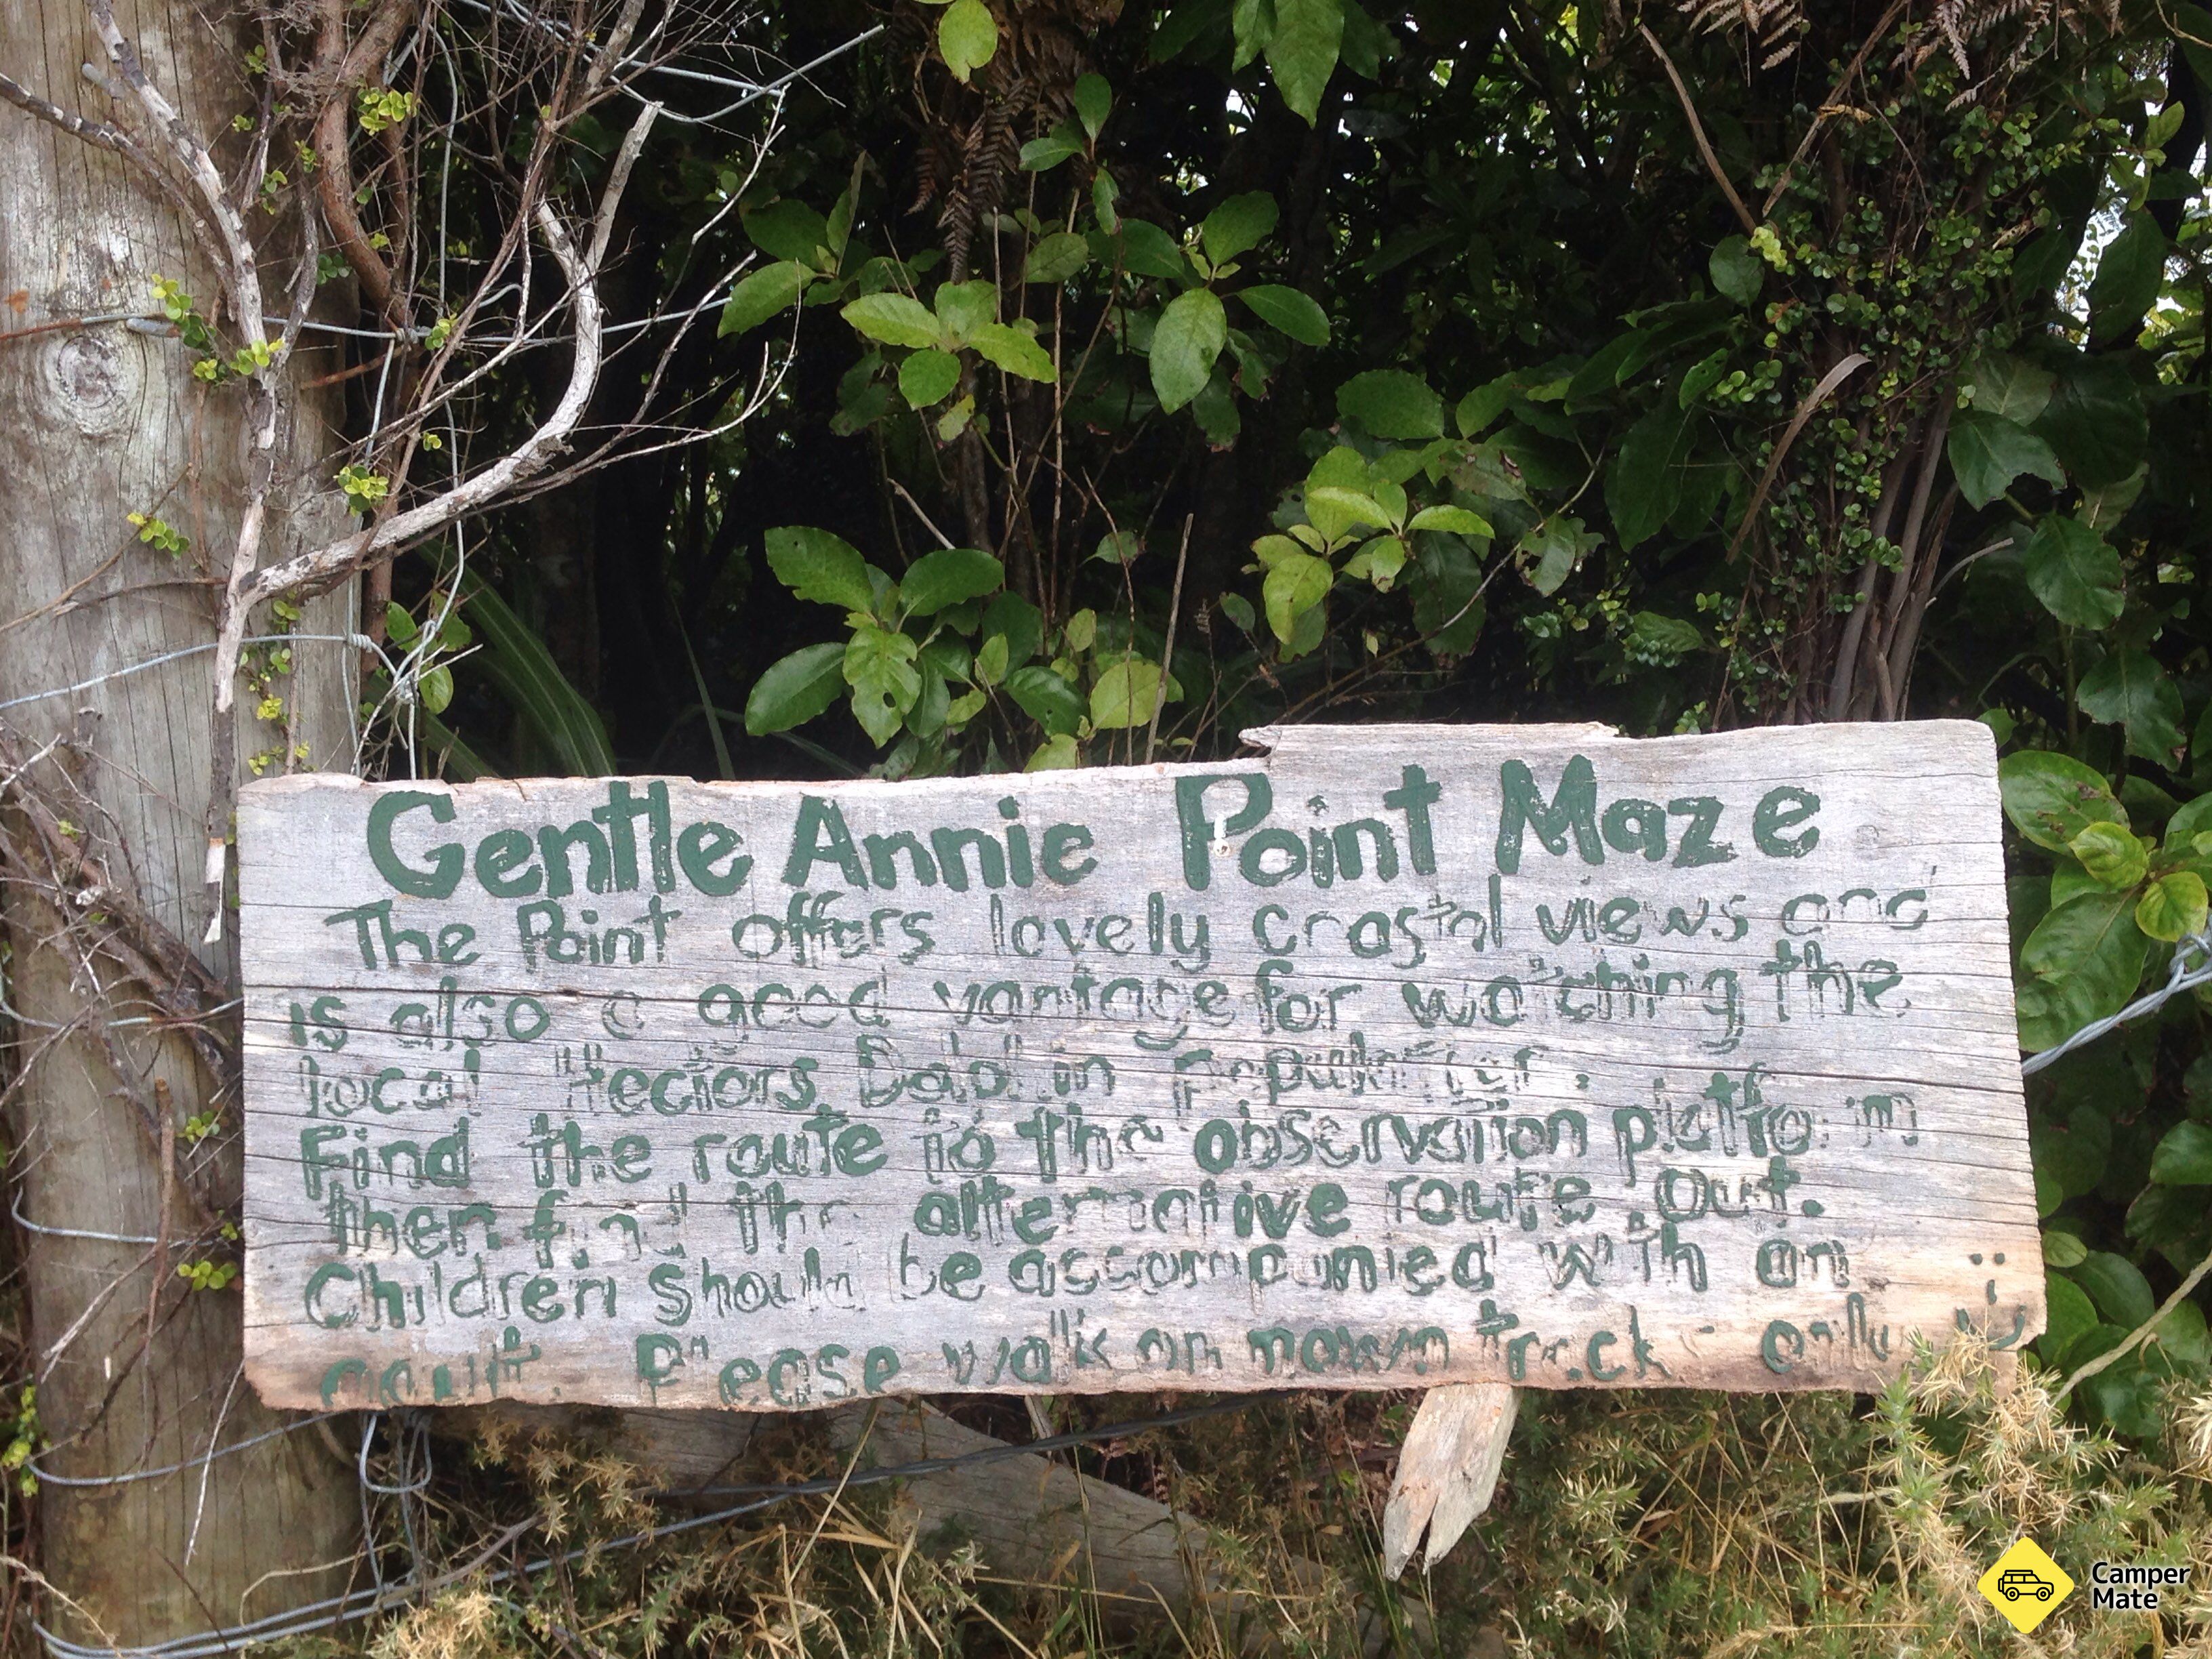 Gentle Annie Point Maze
The Point offers lovely coastal views and
is also a good vantage for watching the
local Hectors Dolphin population.
Find the route to the observation platform
then find the alternative route out.
Children should be accompanied with an
adult. Please walk on mown track - only :)
Camper
Mate